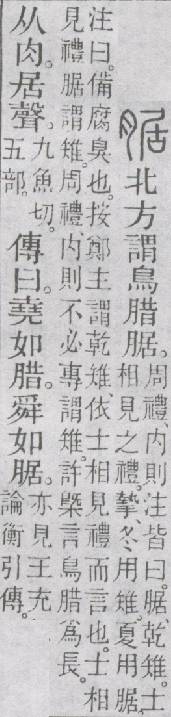 腒北方謂鳥腊腒。
周禮、內則注皆曰。腒、乾雉。士
相見之禮。摯、冬用雉。夏用腒。
注曰。備腐臭也。按鄭主謂乾雉。依士相見禮而言也。士相
見禮腒謂雉。周禮、內則不必專謂雉。許槩言鳥腊爲長。
从肉。居聲。
九魚切。
五部。
傳曰。堯如腊。舜如腒。
亦見王充
論衡引傳。